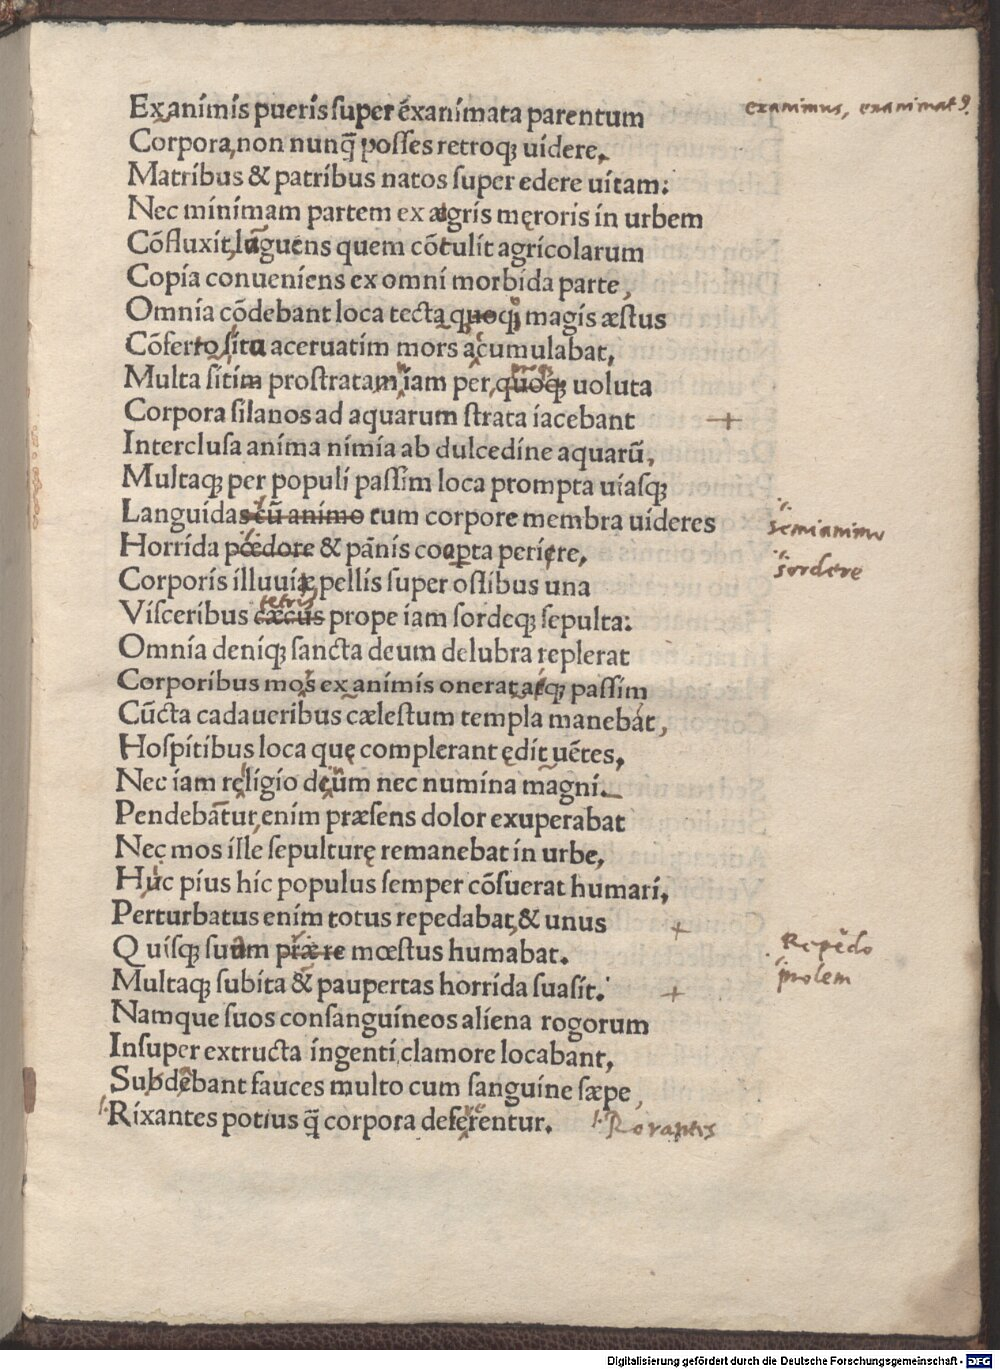 Exanimis pueris super exanimata parentum
examimus, exanimatꝰ.
Corpora, non nunq̄ posses retroq; uidere.
Matribus & patribus natos super edere uitam:
Nec minimam partem ex ægris męroris in urbem
Cōfluxit, lāguens quem cōtulit agricolarum
Copia conueniens ex omni morbida parte,
Omnia cōdebant loca tecta quoq; magis æstus
Cōferto situ aceruatim mors acumulabat,
Multa sitim prostratam iam per, quoq; uoluta
Corpora silanos ad aquarum strata iacebant +
Interclusa anima nimia ab dulcedine aquarū,
Multaq; per populi passim loca prompta uiasq;
Languidas cū animo cum corpore membra uideres
semianimo
Horrida pœdore & pānis coaperta perire,
sordere
Corporis illuuiæ, pellis super ossibus una
tetris
Visceribus cæcius prope iam sordeq; sepulta:
Omnia deniq; sancta deum delubra replerat
Corporibus mos exanimis onerataq; passim
Cūcta cadaueribus cælestum templa manebāt,
Hospitibus loca quę complerant ędituētes,
Nec iam religio deum nec numina magni.
Pendebātur, enim præsens dolor exuperabat
Nec mos ille sepulturę remanebat in urbe,
Huc pius hic populus semper cōsuerat humari,
Perturbatus enim totus repedabat, & unus +
Repedo
Quisq; suum præ re mœstus humabat.
prolem
Multaq; subita & paupertas horrida suasit. +
Namque suos consanguineos aliena rogorum
Insuper extructa ingenti clamore locabant,
Subdebant fauces multo cum sanguine sæpe,
Rixantes potius q̄ corpora deferentur.
l. Rorantes
Digitalisierung gefördert durch die Deutsche Forschungsgemeinschaft - DFG